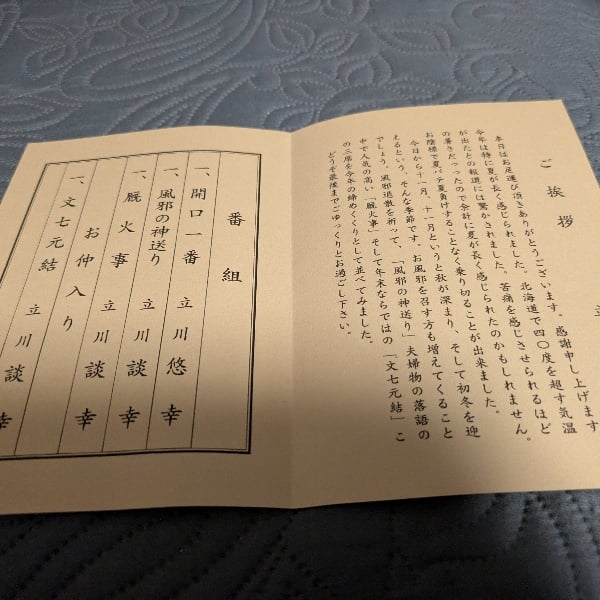 ご挨拶
立
本日はお足運び頂きありがとうございます。感謝申し上げます
今年は特に夏が長く感じられました。北海道で四〇度を超す気温
が出たとの報道には驚かされました。苦痛を感じさせられるほど
の暑さだったので余計に夏が長く感じられたのかもしれません。
お陰様で夏バテ夏負けすることなく乗り切ることが出来ました。
今日から十一月、十一月というと秋が深まり、そして初冬を迎
えるという、そんな季節です。お風邪を召す方も増えてくること
でしょう。風邪退散を祈って、「風邪の神送り」夫婦物の落語の
中で人気の高い「厩火事」そして年末ならではの「文七元結」こ
の三席を今年の締めくくりとして並べてみました。
どうぞ最後までごゆっくりとお過ごし下さい。
番組
一、開口一番 立川悠幸
一、風邪の神送り 立川談幸
一、厩火事 立川談幸
お仲入り
一、文七元結 立川談幸